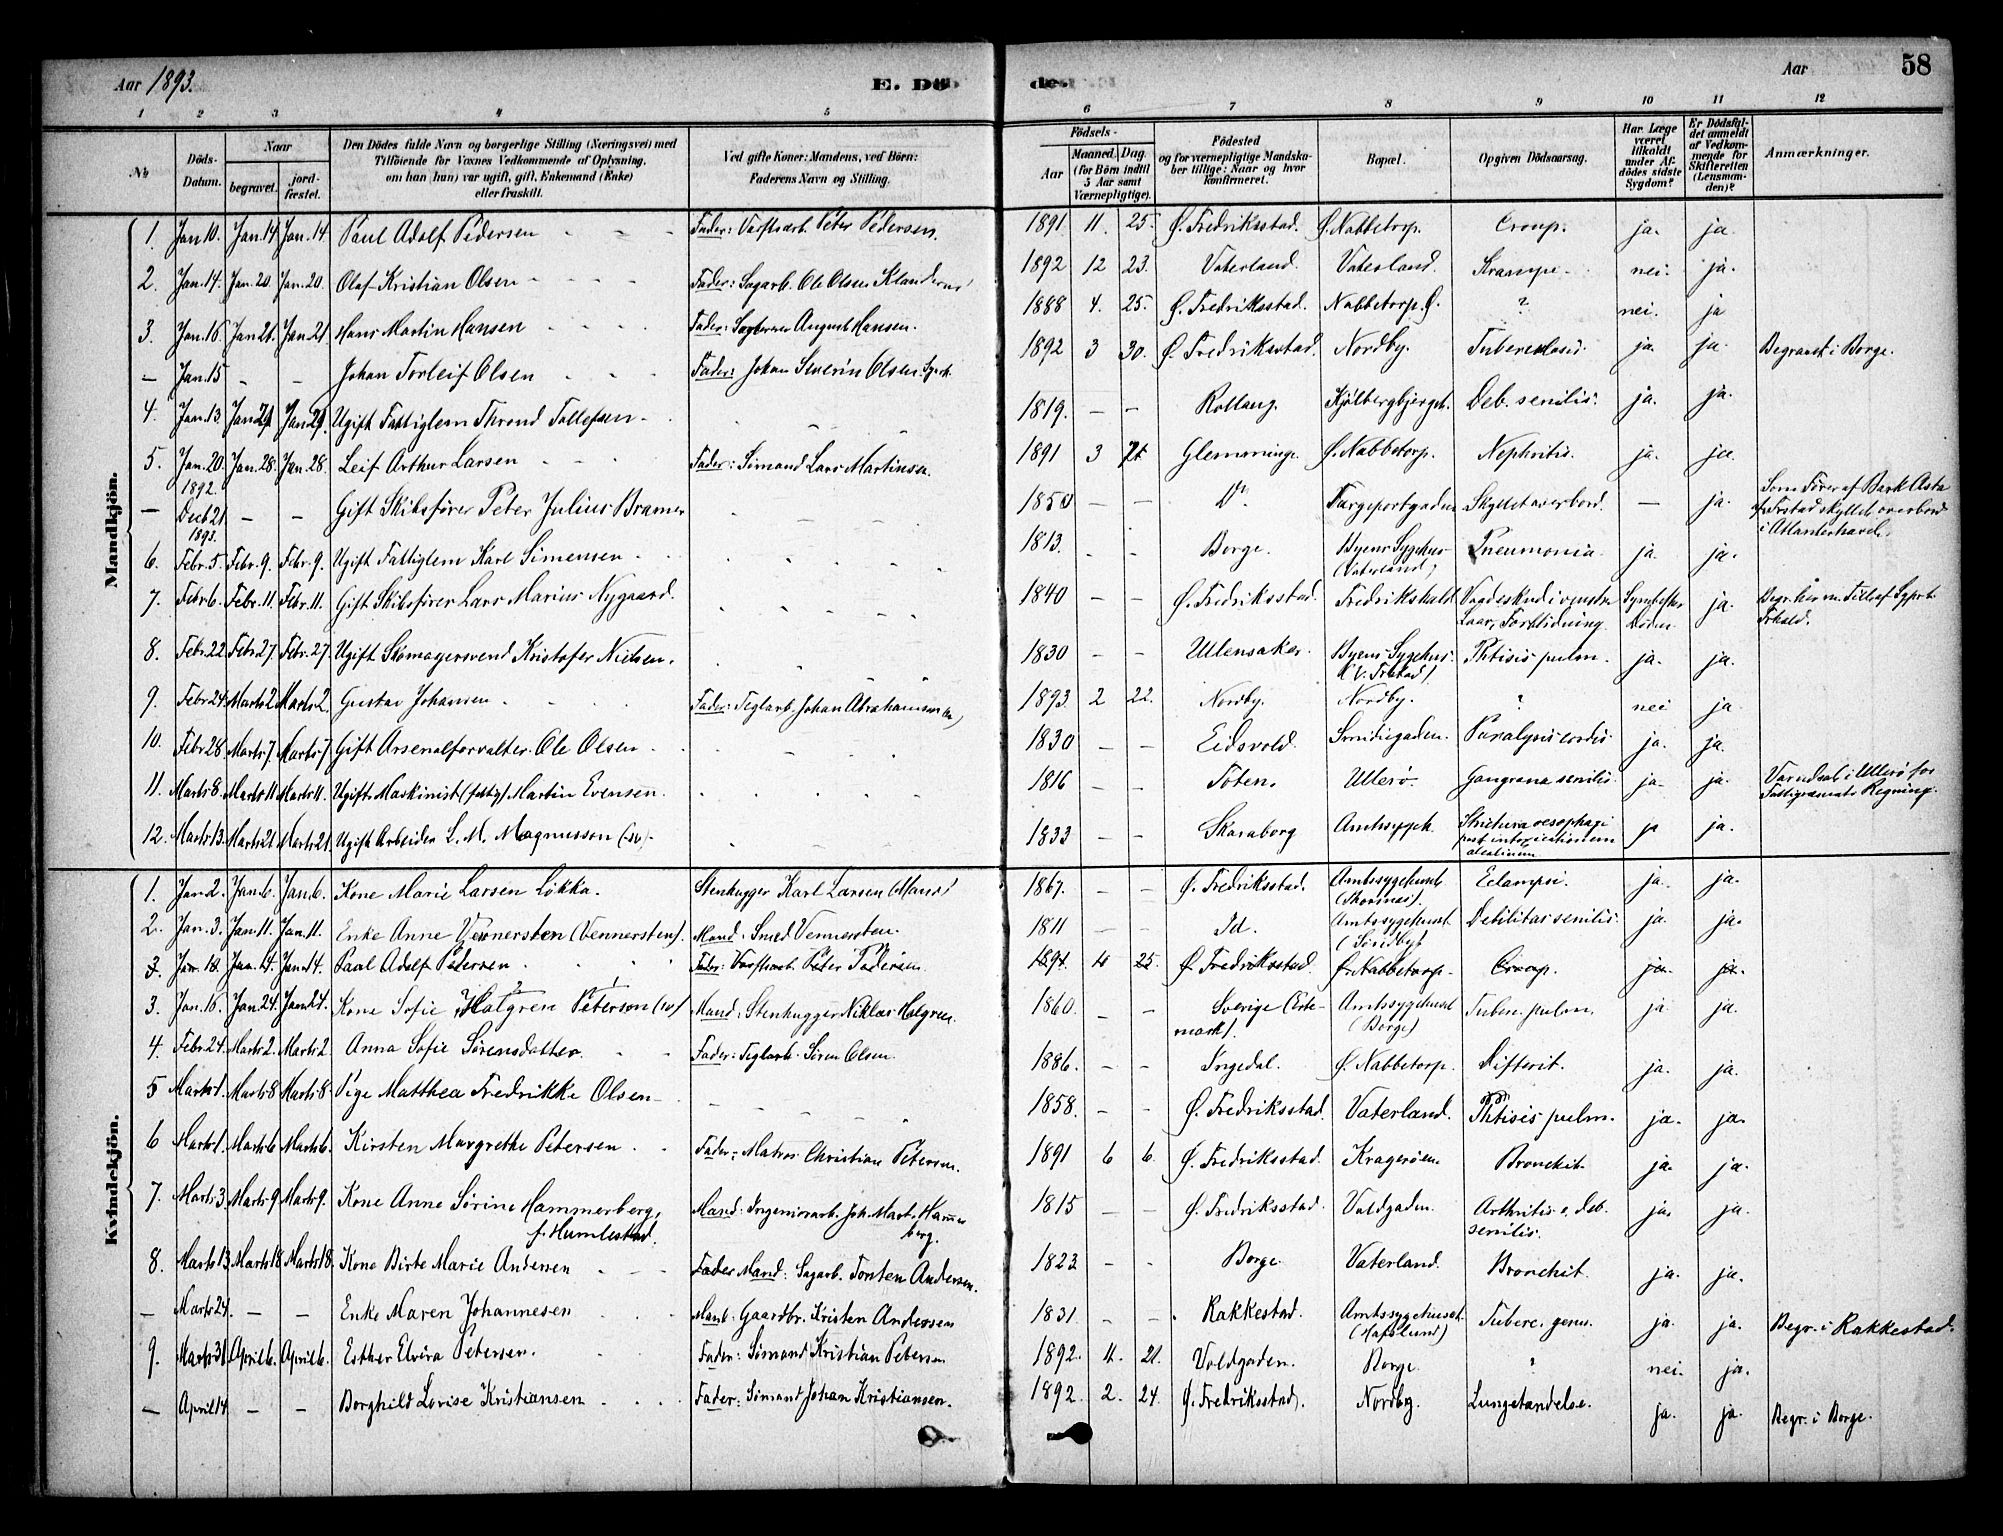 Aar 1893. E. Dö de. Aar 58
1 2 3 4 5 6 7 8 9 10 11 12
No Döds-Datum. Naar begravet. jordfæstet. Den Dödes fulde Navn og borgerlige Stilling (Næringsvei) med Tilföiende for Voxnes Vedkommende af Oplysning, om han (hun) var ugift, gift, Enkemand (Enke) eller fraskilt. Ved gifte Koner: Mandens, ved Börn: Faderens Navn og Stilling. Födsels- Aar Maaned. Dag. (for Börn indtil 5 Aar samt Værnepligtige). Födested og for værnepligtige Mandskaber tillige: Naar og hvor konfirmeret. Bopæl. Opgiven Dödsaarsag. Har Læge været tilkaldt under Afdödes sidste Sygdom? Er Dödsfaldet anmeldt af Vedkommende for Skifteretten (Lensmanden)? Anmærkninger.
Mandkjön.
1. Jan 10. Jan. 14 Jan. 14 Paul Adolf Pedersen Fader: Værftsarb. Peter Pedersen. 1891 11. 25. Ø. Fredriksstad. Ø. Nabbetorp. Croup. ja. ja
2. Jan. 14. Jan. 20. Jan. 20. Olaf Kristian Olsen Fader: Sagarb. Ole Olsen 1892 12 23. Vaterland. Vaterland. Krampe. nei. ja.
3. Jan. 16. Jan 21. Jan 21 Hans Martin Hansen Fader: August Hansen. 1888 4. 25. Ø. Fredriksstad. Nabbetorp. Ø. ? nei. ja
— Jan. 15 - - Johan Torleif Olsen Fader: Johan Severin Olsen 1892 3 30. Ø. Fredriksstad. Nordby. Tuberculosis. ja. ja. Begravet i Borge.
4. Jan. 13. Jan 21 Jan 21. Ugift Fattiglem Thrond Tollefsen 1819. - - Rollaug. Kjölbergbjerget. Deb. senilis. ja. ja.
5. Jan. 20. Jan. 28. Jan. 28. Leif Arthur Larsen Fader: Sömand Lars Martinsen 1891 3 21 Glemminge. Ø. Nabbetorp. Nephritis. ja. ja.
1892.
— Decb 21 - - Gift Skibsfører Peter Julius Bramer 1850 - - Do Færgeportgaden Skyllet overbord. — ja. Som Fører af Bark Asta af Frstad skyllet overbord i Atlanterhavet.
1893.
6. Febr. 5. Febr. 9. Febr. 9. Ugift Fattiglem Karl Simensen 1813. - - Borge. Byens Sygehus (Vaterland) Pneumonia ja ja.
7. Febr 6. Febr. 11. Febr. 11. Gift Skibsfører Lars Marius Nygaard. 1840 - - Ø. Fredriksstad. Fredrikshald Vaadeskud i venstre Laar, Forblødning. ja.
8. Febr. 22 Febr. 27 Febr. 27. Ugift Skomagersvend Kristofer Nielsen. 1830 - - Ullensaker Byens Sygehus (V. Frstad) Phtisis pulm. ja. ja.
9. Febr 24. Marts 2 Marts 2. Gustav Johansen Fader: Teglarb. Johan Abrahamsen 1893. 2 22. Nordby. Nordby. ? nei ja.
10. Febr 28 Marts 7 Marts 7. Gift Arsenalforvalter Ole Olsen 1830 - - Eidsvold. Smediegaden. Paralysis cordis. ja. ja.
11. Marts 8. Marts 11 Marts 11. Ugift Maskinist (fattig) Martin Evensen. 1816 - - Toten. Ullerö. Gangræna senilis. ja- ja. Var udsat i Ullerö for Fattigvæsenets Regning.
12. Marts 13. Marts 21 Marts 21 Ugift Arbeider L. M. Magnusson (sv) 1833 - - Skaraborg Amtssygeh. Strictura oesophagi post intoxicationem ja ja.
Kvindekjön.
1. Jan 2. Jan. 6. Jan. 6. Kone Marie Larsen Løkka. Stenhugger Karl Larsen (Mand) 1867. - - Ø. Fredriksstad. Amtssygehuset Eclampsi. ja. ja.
2. Jan. 3. Jan. 11. Jan. 11. Enke Anne Vennersten (Vennersten). Mand: Smed Vennersten. 1811 - - Id. Amtssygehuset Debilitas senilis. ja ja.
3. Jan. 10. Jan. 14. Jan 14. Paul Adolf Pedersen Fader: Værftsarb. Peter Pedersen 1891. 11 25. Ø. Fredriksstad. Ø. Nabbetorp. Croup. ja. ja.
3. Jan. 16. Jan. 24. Jan 24. Kone Sofie Halgren Peterson (sv) Mand: Stenhugger Niklas Halgren. 1860. - - Sverige Amtssygehuset (Borge) Tuberc. pulm. ja ja.
4. Febr 24. Marts 2. Marts 2 Anna Sofie Sörensdatter. Fader: Teglarb. Sören Olsen. 1886. - - Ingedal. Ø. Nabbetorp. Difterit. ja. ja.
5 Marts 1. Marts 8 Marts 8. Pige Matthea Fredrikke Olsen 1858. - - Ø. Fredriksstad. Vaterland. Phtisis pulm. ja. ja.
6 Marts 1. Marts 6 Marts 6. Kirsten Margrethe Petersen Fader: Matros Christian Petersen. 1891 6 6. Ø. Fredriksstad. Kragerøen. Bronchit. ja. ja.
7. Marts 3 Marts 9 Marts 9. Kone Anne Sörine Hammerberg, f. Humlestad. Mand: Ingeniørarb. Joh. Mart. Hammerberg. 1815 - - Ø. Fredriksstad. Voldgaden. Arthritis e. deb. senilis. ja. ja.
8. Marts 13. Marts 18 Marts 18. Kone Birte Marie Andersen Fader Mand: Sagarb. Torsten Andersen. 1823 - - Borge. Vaterland. Bronchit. ja. ja.
— Marts 24 - - Enke Maren Johannesen Mand. Gaardbr. Kristen Andersen 1831. - - Rakkestad. Amtssygehuset (Hafslund) Tuberc. genu. ja. ja. Begr. i Rakkestad.
9. Marts 31 April 6. April 6. Esther Elvira Petersen. Fader: Sömand Kristian Petersen 1892. 11. 21. Voldgaden. Borge. ? nei. ja.
— April 14 - - Borghild Lovise Kristiansen Fader: Sömand Johan Kristiansen. 1892. 2. 24. Ø. Fredriksstad. Nordby. Lungetændelse. ja. ja. Begr. i Borge.